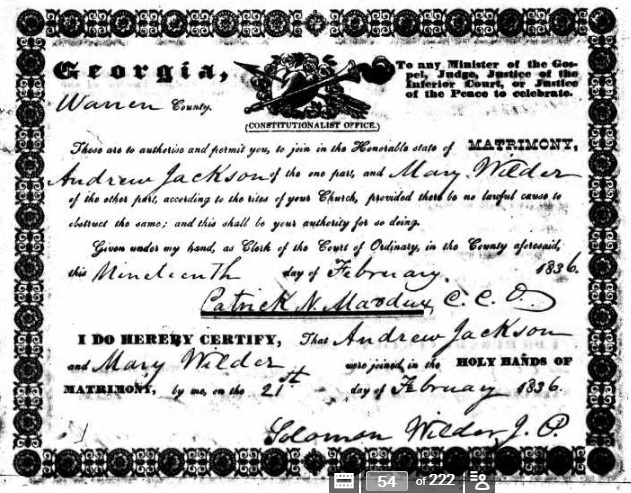 Georgia,
Warren County.
(CONSTITUTIONALIST OFFICE.)
To any Minister of the Gos-
pel, Judge, Justice of the
Inferior Court, or Justice
of the Peace to celebrate.
These are to authorise and permit you, to join in the Honorable state of MATRIMONY,
Andrew Jackson of the one part, and Mary Wilder
of the other part, according to the rites of your Church, provided there be no lawful cause to
obstruct the same; and this shall be your authority for so doing.
Given under my hand, as Clerk of the Court of Ordinary, in the County aforesaid,
this Nineteenth day of February 1836.
Patrick N. Maddux, C. C. O.
I DO HEREBY CERTIFY, That Andrew Jackson
and Mary Wilder were joined in the HOLY BANDS OF
MATRIMONY, by me, on the 21st day of February 1836.
Solomon Wilder, J. P.
54 of 222